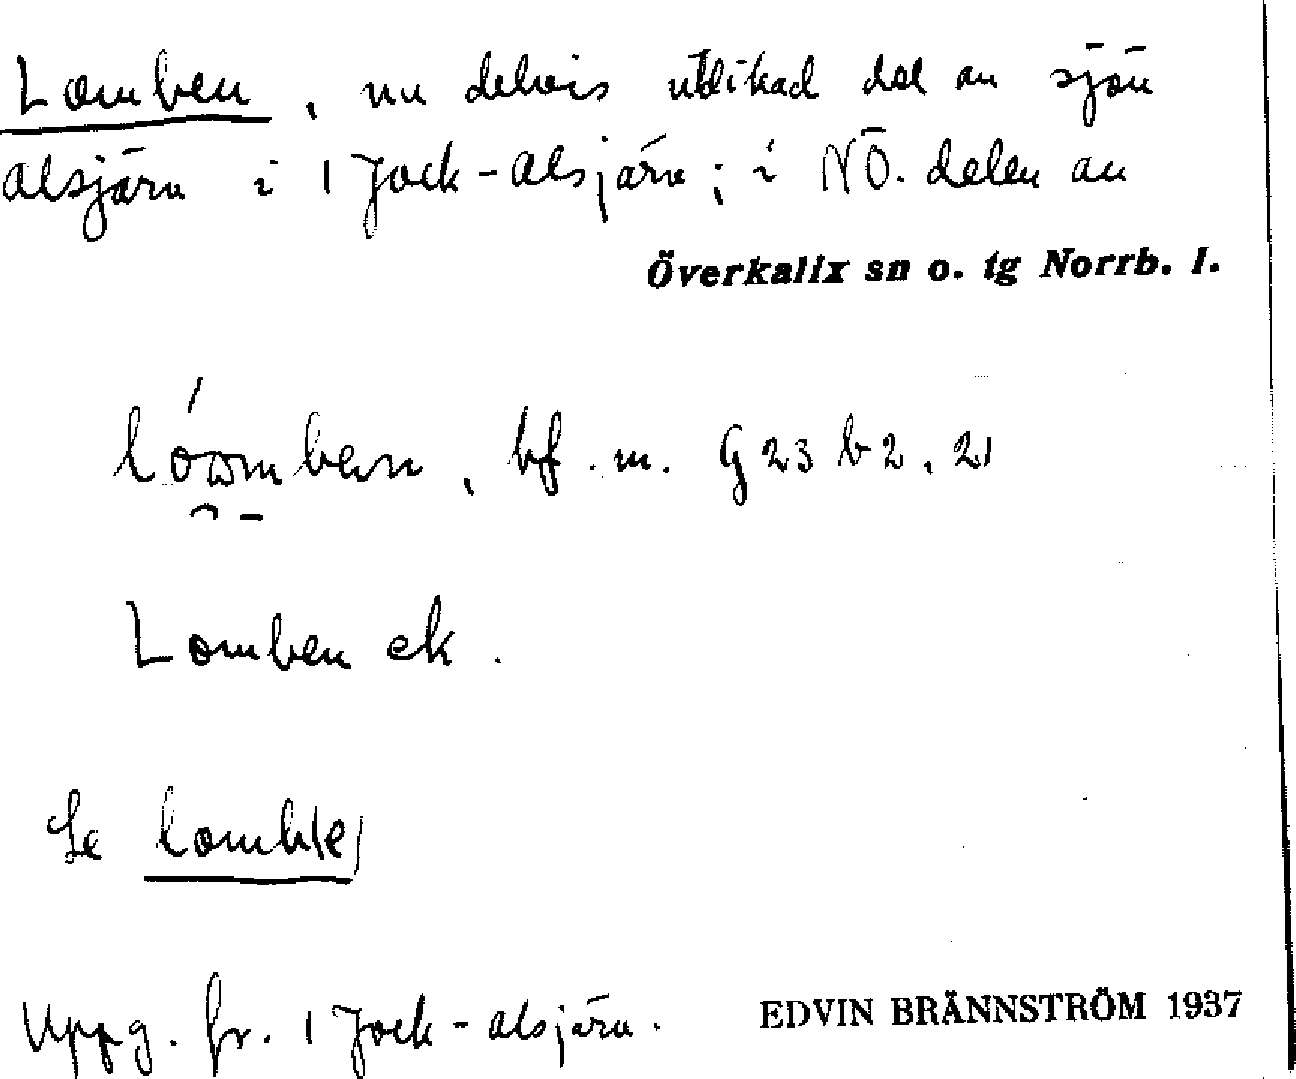 Lomben, nu delvis utdikad del av sjön
Alsjärv i 1 Jock-Alsjärv; i NÖ. delen av
Överkalix sn o. tg Norrb. l.
bf. m. G 23 b 2, 21
Lomben ek.
Se lomb(e)
Uppg. fr. 1 Jock-Alsjärv.
EDVIN BRÄNNSTRÖM 1937